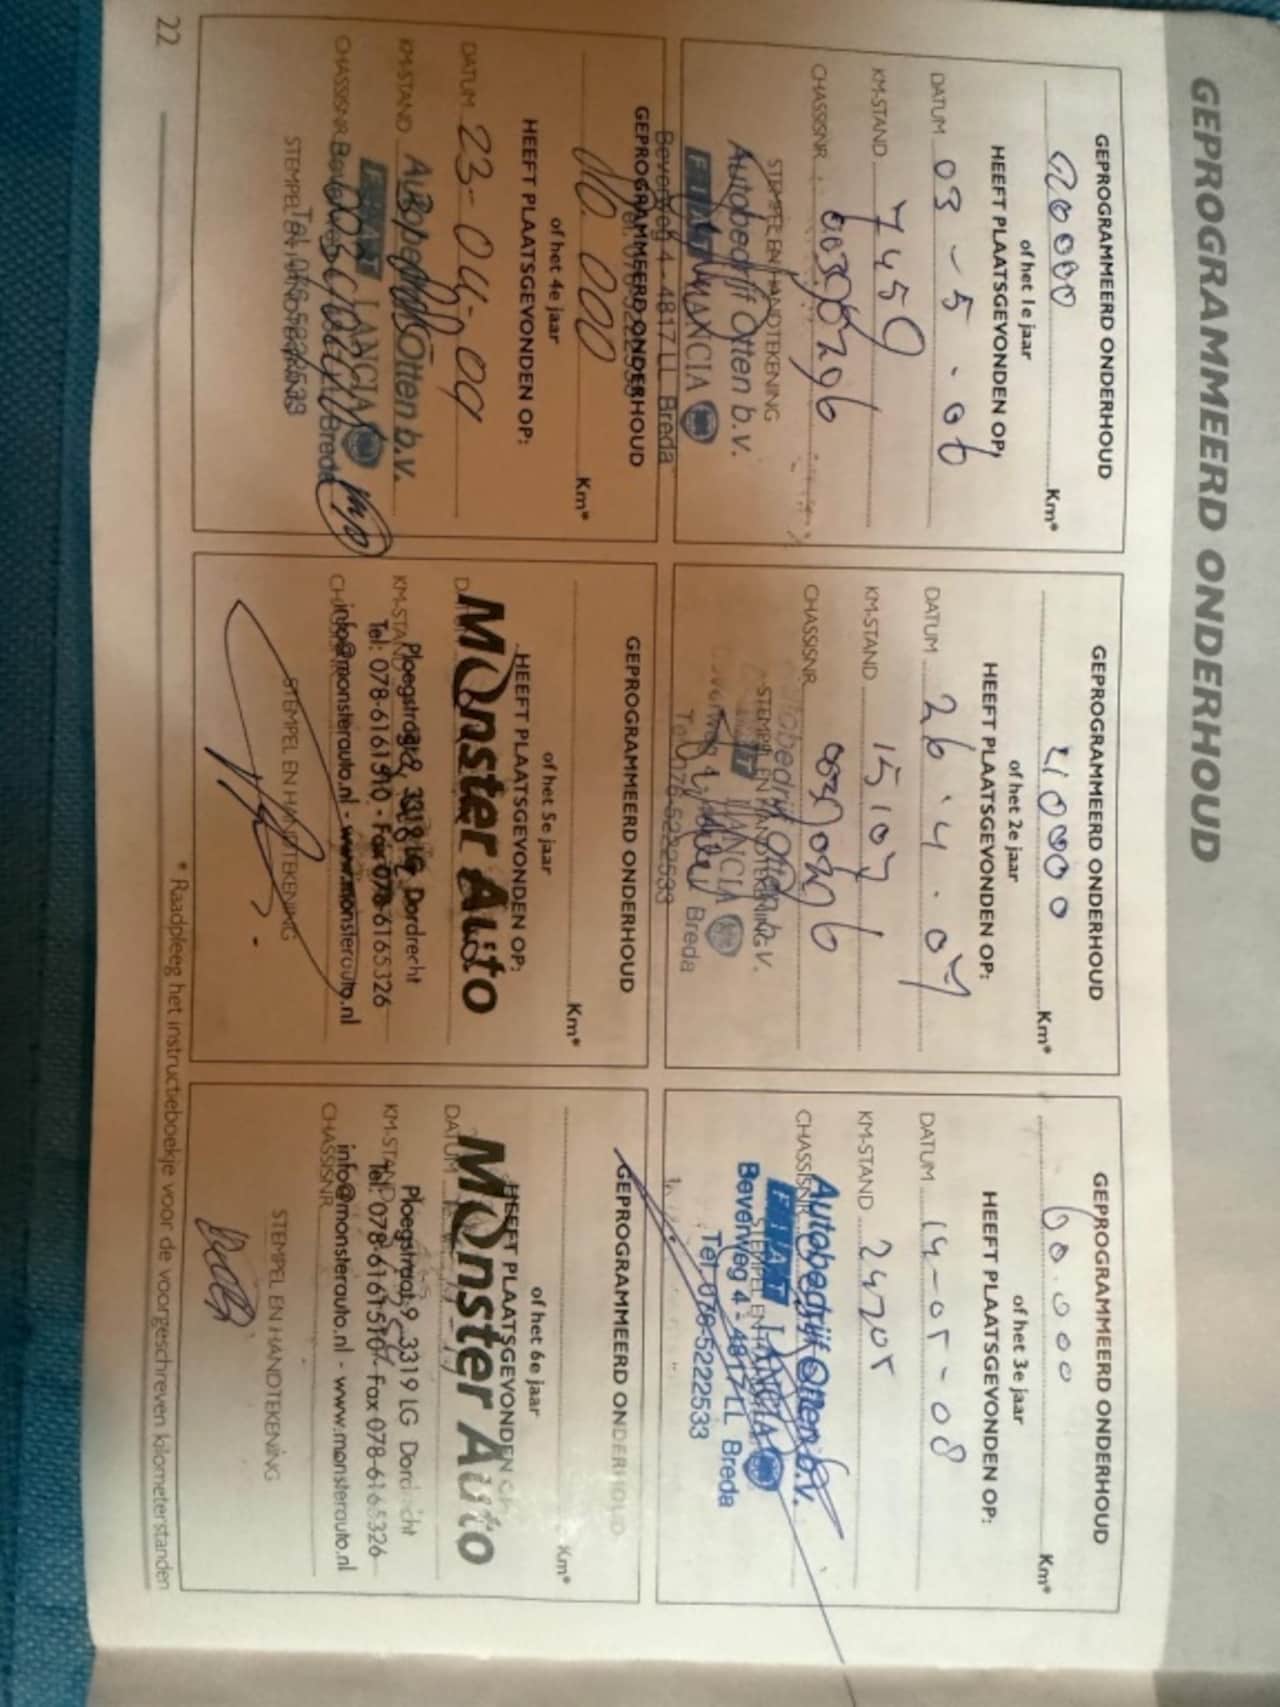 GEPROGRAMMEERD ONDERHOUD
GEPROGRAMMEERD ONDERHOUD
20000 Km*
of het 1e jaar
HEEFT PLAATSGEVONDEN OP:
DATUM 03-5-06
KM-STAND 7450
CHASSISNR.
STEMPEL EN HANDTEKENING
Autobedrijf Otten b.v.
FIAT LANCIA
Beverweg 4 - 4817 LL Breda
GEPROGRAMMEERD ONDERHOUD
40000 Km*
of het 2e jaar
HEEFT PLAATSGEVONDEN OP:
DATUM 26.4.07
KM-STAND 15107
CHASSISNR.
STEMPEL EN HANDTEKENING
LANCIA
Breda
Tel. 076-5222533
GEPROGRAMMEERD ONDERHOUD
60.000 Km*
of het 3e jaar
HEEFT PLAATSGEVONDEN OP:
DATUM 14-05-08
KM-STAND 24705
CHASSISNR.
Autobedrijf Otten b.v.
FIAT LANCIA
STEMPEL EN
Beverweg 4 - 4817 LL Breda
Tel. 076-5222533
GEPROGRAMMEERD ONDERHOUD
000 Km*
of het 4e jaar
HEEFT PLAATSGEVONDEN OP:
DATUM 23-04-09
KM-STAND
Otten b.v.
FIAT LANCIA
CHASSISNR.
Breda
STEMPEL
GEPROGRAMMEERD ONDERHOUD
Km*
of het 5e jaar
HEEFT PLAATSGEVONDEN OP:
Monster Auto
KM-STAND
Ploegstraat 9, 3319 LG Dordrecht
Tel: 078-6161510 - Fax 078-6165326
info@monsterauto.nl - www.monsterauto.nl
STEMPEL EN HANDTEKENING
GEPROGRAMMEERD ONDERHOUD
Km*
of het 6e jaar
HEEFT PLAATSGEVONDEN OP:
DATUM
Monster Auto
KM-STAND
Ploegstraat 9, 3319 LG Dordrecht
Tel: 078-6161510 - Fax 078-6165326
info@monsterauto.nl - www.monsterauto.nl
CHASSISNR.
STEMPEL EN HANDTEKENING
* Raadpleeg het instructieboekje voor de voorgeschreven kilometerstanden
22